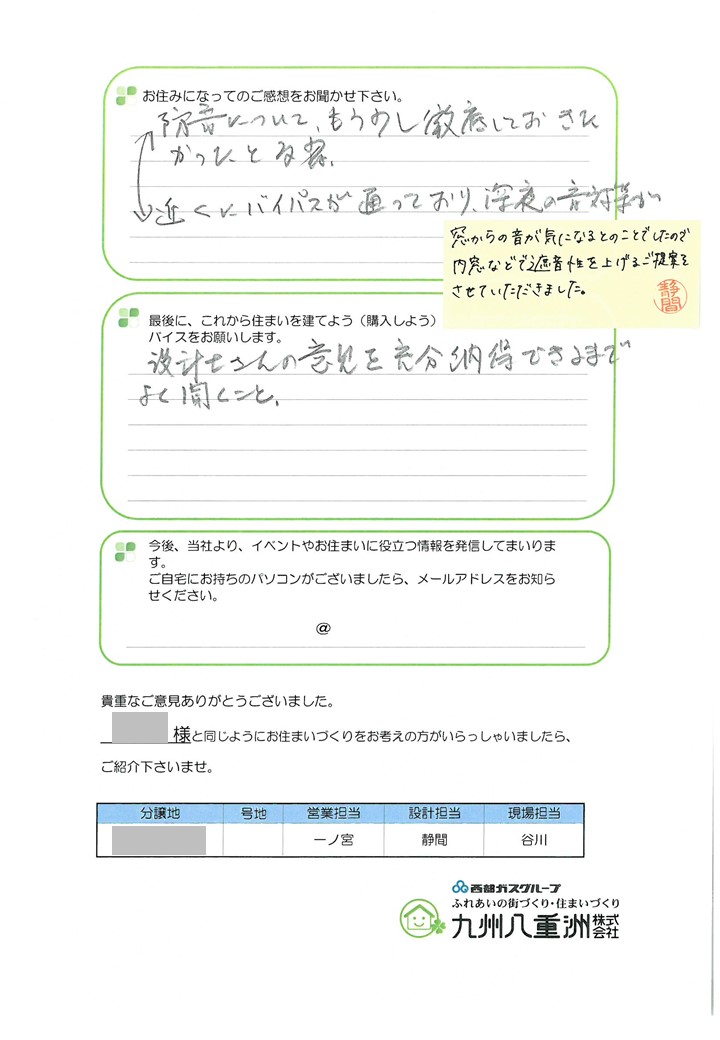 お住みになってのご感想をお聞かせ下さい。
防音について、もう少し徹底しておきた
かったと
近くにバイパスが通っており、深夜の音対策が
窓からの音が気になるとのことでしたので
内窓などで遮音性を上げるご提案を
させていただきました。
静間
最後に、これから住まいを建てよう（購入しよう）
バイスをお願いします。
設計士さんの意見を充分納得できるまで
よく聞くこと。
今後、当社より、イベントやお住まいに役立つ情報を発信してまいりま
す。
ご自宅にお持ちのパソコンがございましたら、メールアドレスをお知ら
せください。
@
貴重なご意見ありがとうございました。
様と同じようにお住まいづくりをお考えの方がいらっしゃいましたら、
ご紹介下さいませ。
分譲地 号地 営業担当 設計担当 現場担当
一ノ宮 静間 谷川
西部ガスグループ
ふれあいの街づくり・住まいづくり
九州八重洲株式会社